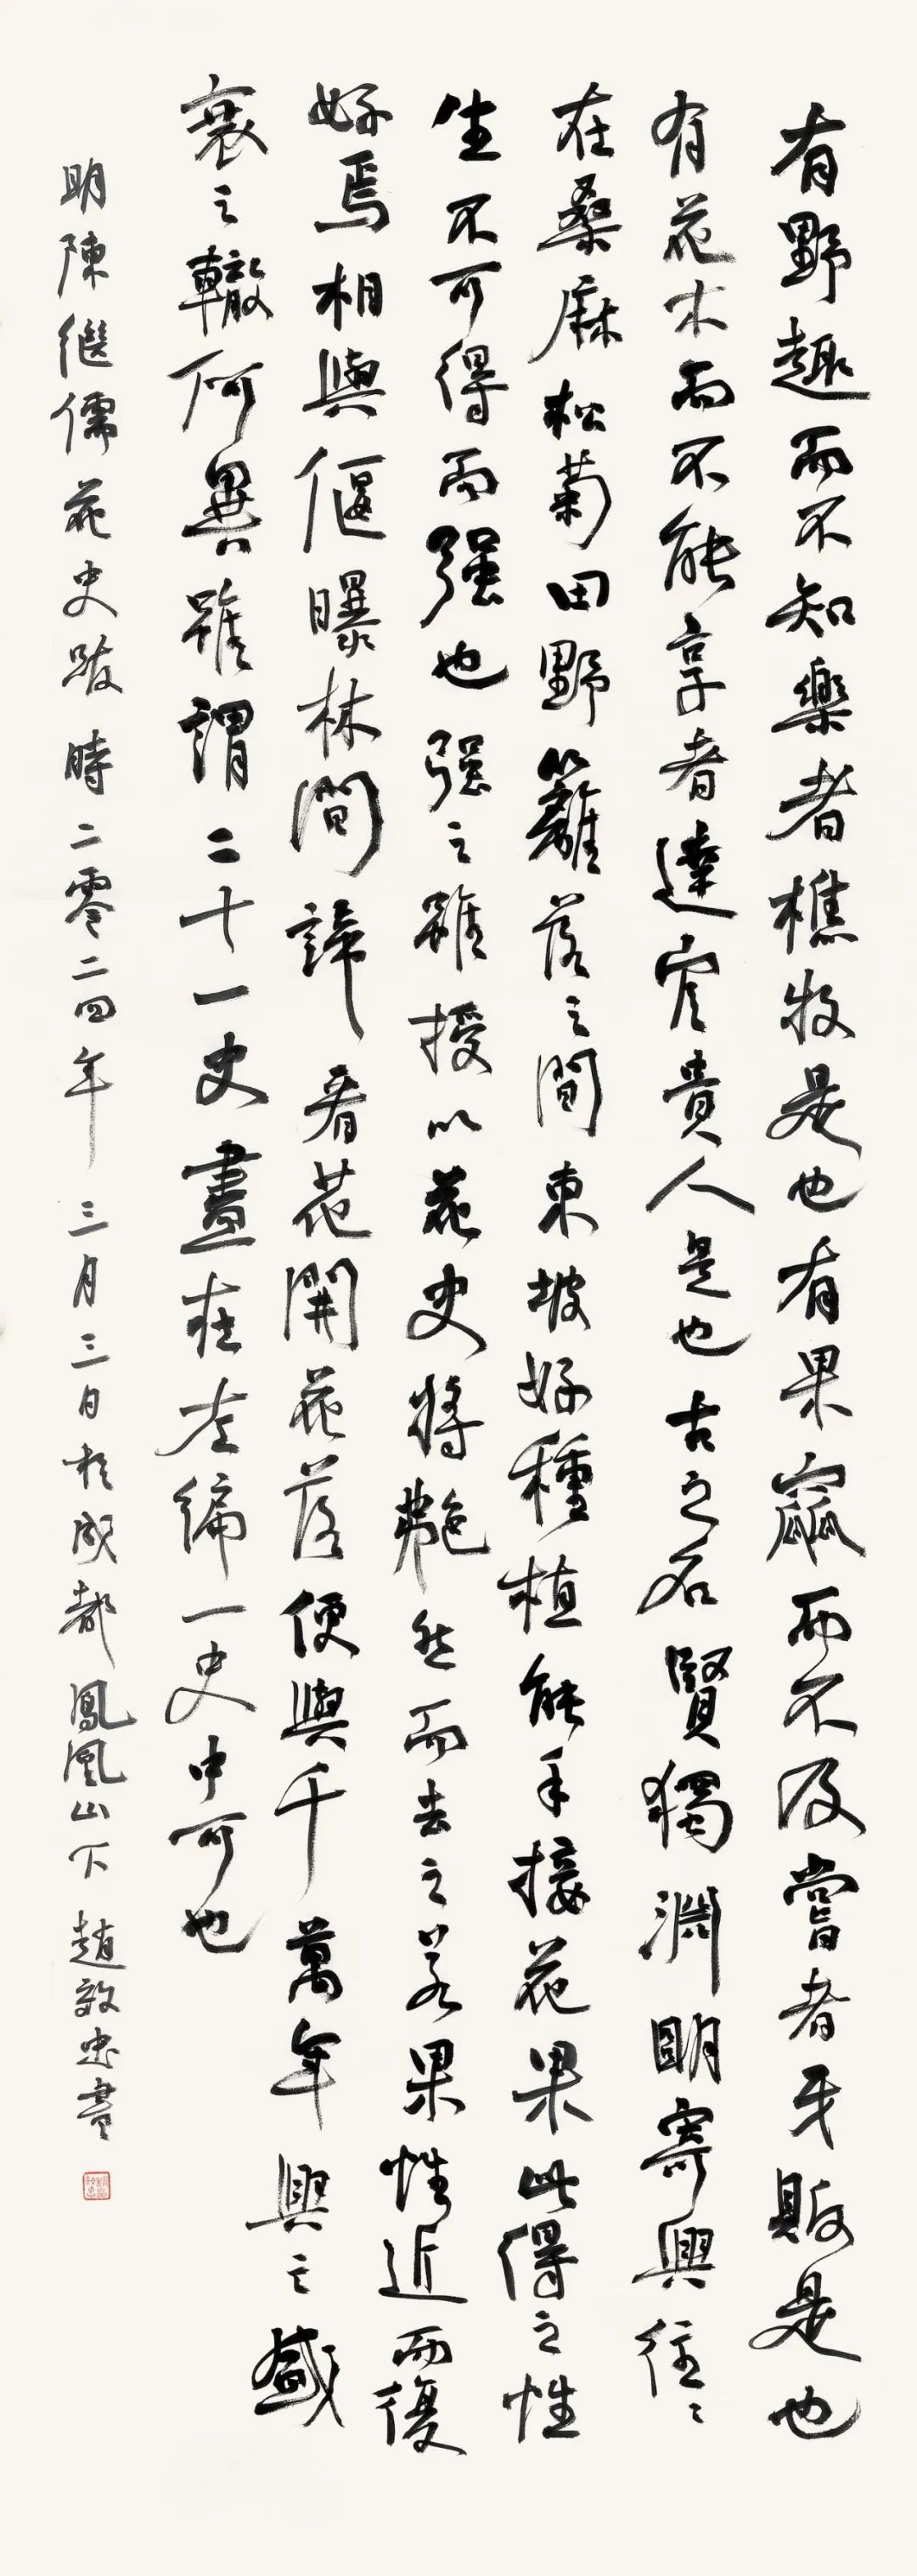 有野趣而不知樂者樵牧是也有果窳而不及嘗者牙販是也
有花木而不能享者達官貴人是也古之名賢獨淵明寄興往〻
在桑麻松菊田野籬落之間東坡好種植能手接花果此得之性
生不可得而强也强之雖授以花史將艴然而去之若果性近而復
好焉相與偃曝林間諦看花開花落便與千萬年興之盛
衰之轍何異雖謂二十一史盡在左編一史中可也
明陳繼儒花史跋時二零二四年三月三日於成都鳳凰山下趙敬忠書